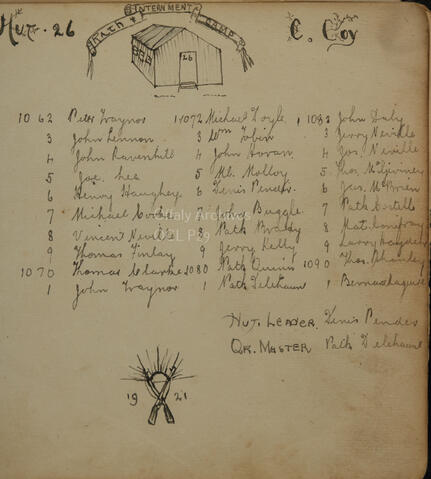 Hut. 26
RATH INTERNMENT CAMP
C. Coy
26
1062 Peter Traynor 1072 Michael Doyle 1082 John Daly
3 John Lennon 3 Wm Tobin 3 Jerry Neville
4 John Ravenhill 4 John Horan 4 Jos. Neville
5 Jos. Lea 5 Ml. Molloy 5 Thos.
6 Henry Haughey 6 Denis Pender 6 Jas.
7 Michael 7 John Buggle 7 Patk Costello
8 Vincent Neville 8 Patk Brady 8 Mat.
9 Thomas Finlay 9 Jerry Kelly 9 Larry
1070 Thomas Clarke 1080 Patk Quinn 1090 Thos.
1 John Traynor 1 Patk Delehaunt 1
HUT. LEADER. Denis Pender
QR. MASTER Patk Delehaunt
1921